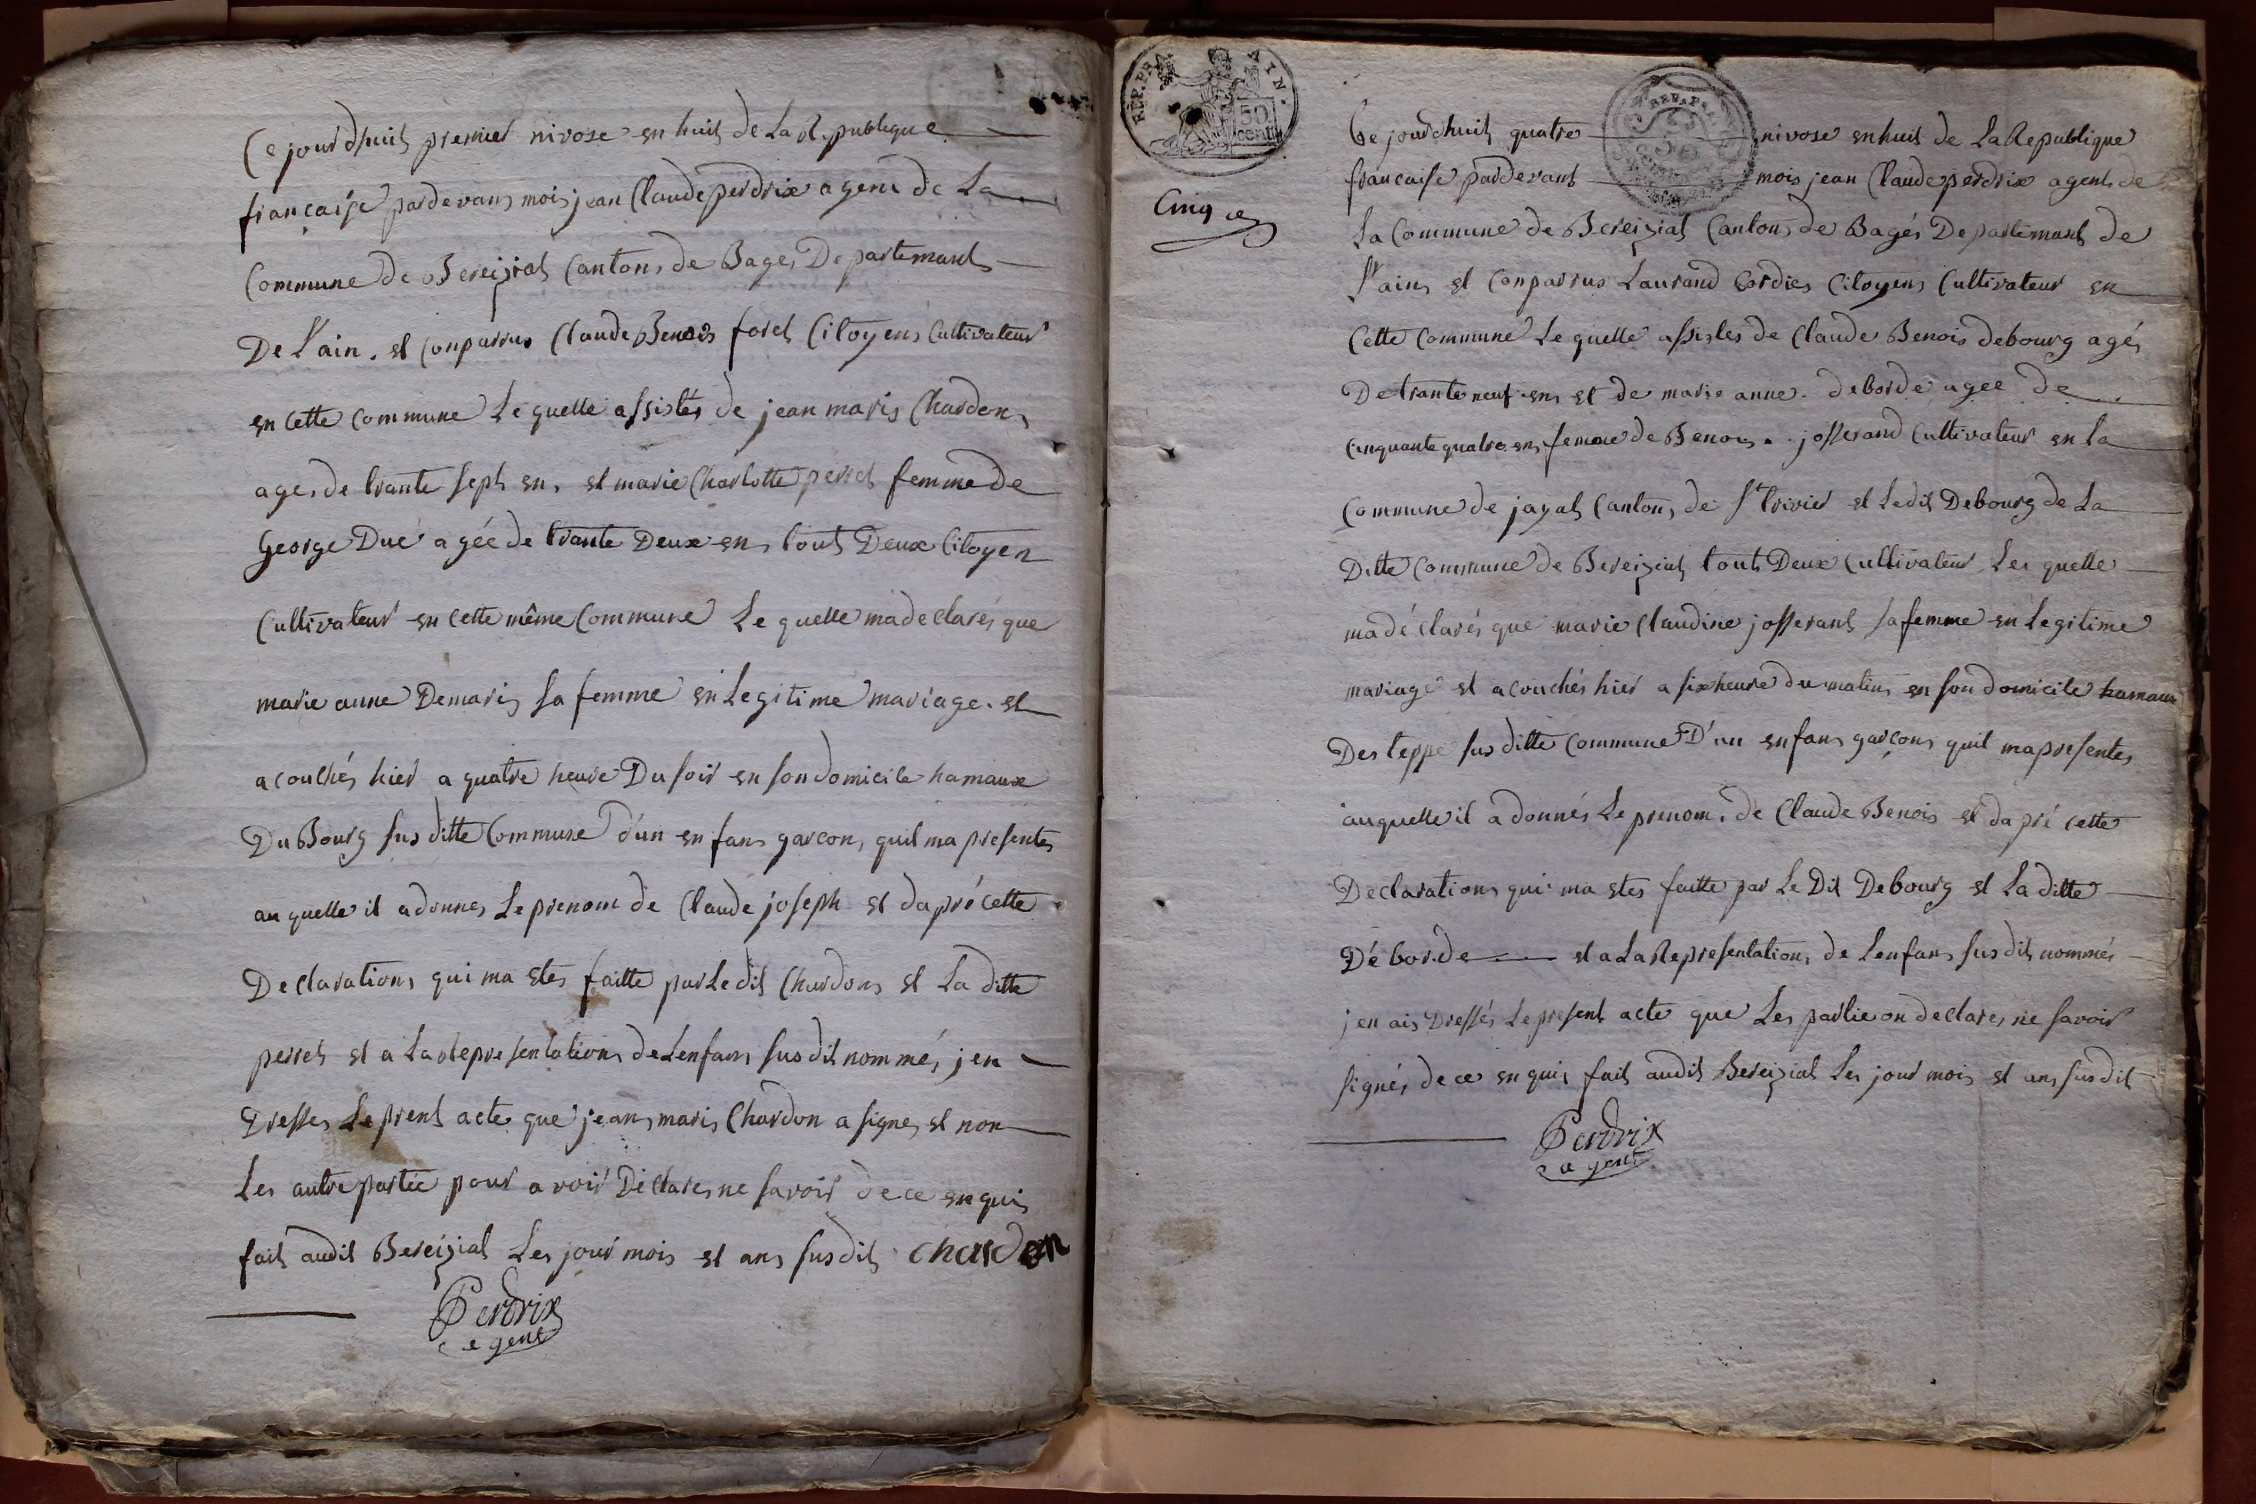 Ce jourd'huit premier nivose en huit de La Republique
française pardevans mois jean Claude perdrix agent de La
Commune de Bereiziat Cantons de Bages Departemants
De l'ain. et Conparrus Claude Benois foret Citoyens Cultivateur
en Cette Commune Le quelle assistés de jean maris Chardons
ages de trante sept ens et marie Charlotte perret femme de
George Duc agée de trante Deux ens tout Deux Citoyen
Cultivateur en Cette même Commune Le quelle ma declarés que
marie anne Demaris sa femme en Legitime mariage. et
acouchés hier a quatre heure Du soir en son domicile hamaux
Du Bourg sus ditte Commune d'un en fans garcon, quil ma presentes
au quelle il a donnes Le prenom de Claude joseph et dapré cette
Declarations qui ma etes faitte par Le dit Chardons et La ditte
perret et a La Representations de Lenfans sus dit nommés, jen
Dresses Le prent acte que jeans maris Chardon a signes et non
Les autre partee pour avoir Declares ne savoir de ce enquis
fait audit Bereiziat Les jour mois et ans susdit Chardon
Perdrix
agent
REP. FRA. AIN.
50 cent
Cinq
Ce jourdhuit quatre nivose en huit de La Republique
francaise pardevant mois jean Claude perdrix agent de
La Commune de Bereiziat Cantons de Bagés Departemant de
l'ains et Conparrus Laurand Cordies Citoyens Cultivateur en
Cette Commune Le quelle assistes de Claude Benois debourg agés
De trante neuf ens et de marie anne deborde agee de
Cinquante quatre ens femme de Benois josserand Cultivateur en La
Commune de jayat Cantons de St trivier et Ledit Debourg de La
Ditte Commune de Bereiziat tout Deux Cultivateur Les quelle
ma déclarés que marie Claudine josserant sa femme en Legitime
mariage et acouchés hier a six heure du matins en son domicile hamaux
Des teppe sus ditte Commune D'un enfans garçons quil ma presentes
auquelle il a donnés Le prenom de Claude Benois et dapré cette
Declarations qui ma etes faitte par Le Dit Debourg et La ditte
Déborde et a La Representations de Lenfans sus dit nommés
jen ais Dressés Le present acte que Les partie on declares ne savoir
signés de ce enquis fait audit Bereiziat Les jour mois et ans susdit
Perdrix
agent